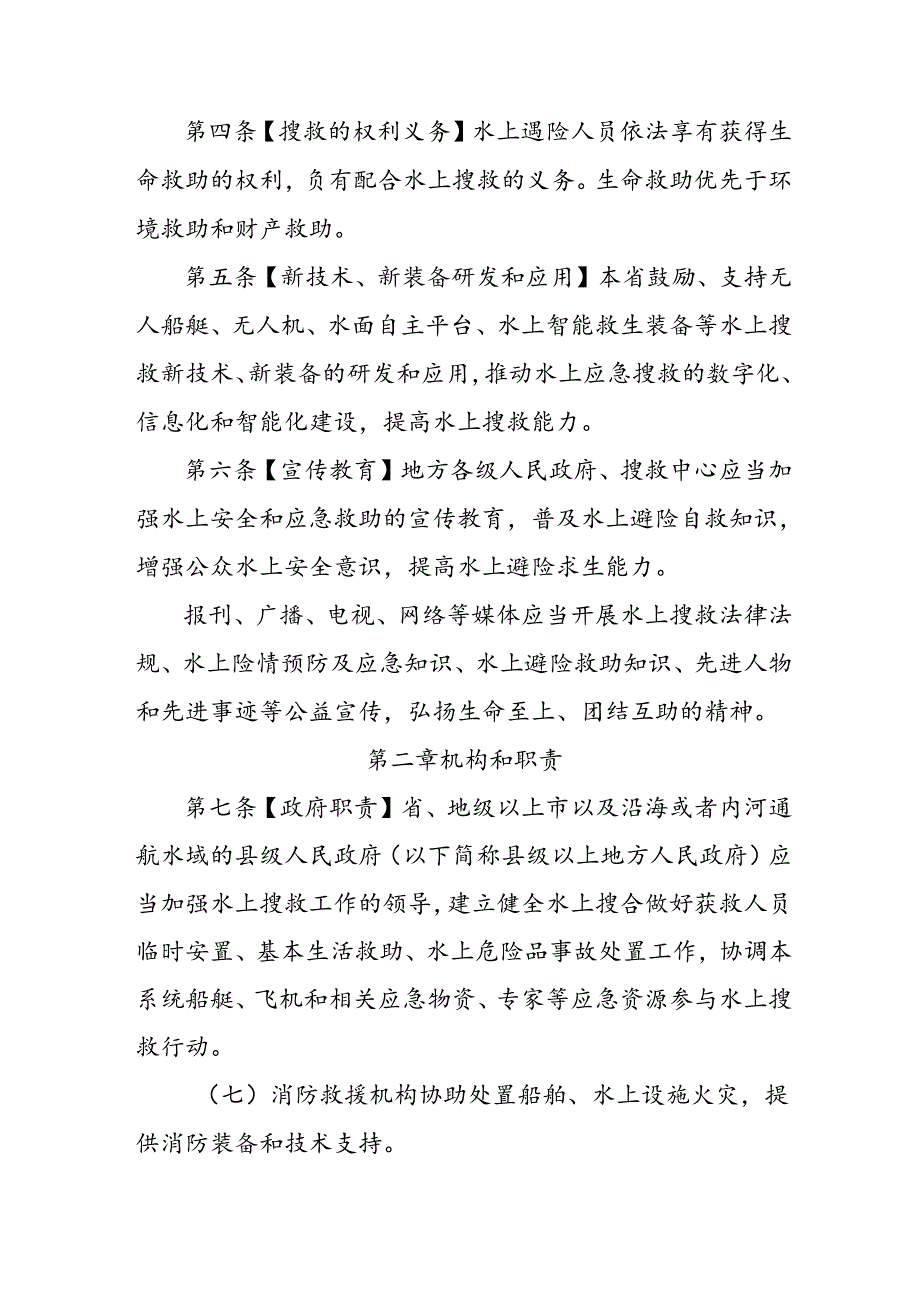 第四条【搜救的权利义务】水上遇险人员依法享有获得生
命救助的权利，负有配合水上搜救的义务。生命救助优先于环
境救助和财产救助。
第五条【新技术、新装备研发和应用】本省鼓励、支持无
人船艇、无人机、水面自主平台、水上智能救生装备等水上搜
救新技术、新装备的研发和应用，推动水上应急搜救的数字化、
信息化和智能化建设，提高水上搜救能力。
第六条【宣传教育】地方各级人民政府、搜救中心应当加
强水上安全和应急救助的宣传教育，普及水上避险自救知识，
增强公众水上安全意识，提高水上避险求生能力。
报刊、广播、电视、网络等媒体应当开展水上搜救法律法
规、水上险情预防及应急知识、水上避险救助知识、先进人物
和先进事迹等公益宣传，弘扬生命至上、团结互助的精神。
第二章机构和职责
第七条【政府职责】省、地级以上市以及沿海或者内河通
航水域的县级人民政府（以下简称县级以上地方人民政府）应
当加强水上搜救工作的领导，建立健全水上搜合做好获救人员
临时安置、基本生活救助、水上危险品事故处置工作，协调本
系统船艇、飞机和相关应急物资、专家等应急资源参与水上搜
救行动。
（七）消防救援机构协助处置船舶、水上设施火灾，提
供消防装备和技术支持。